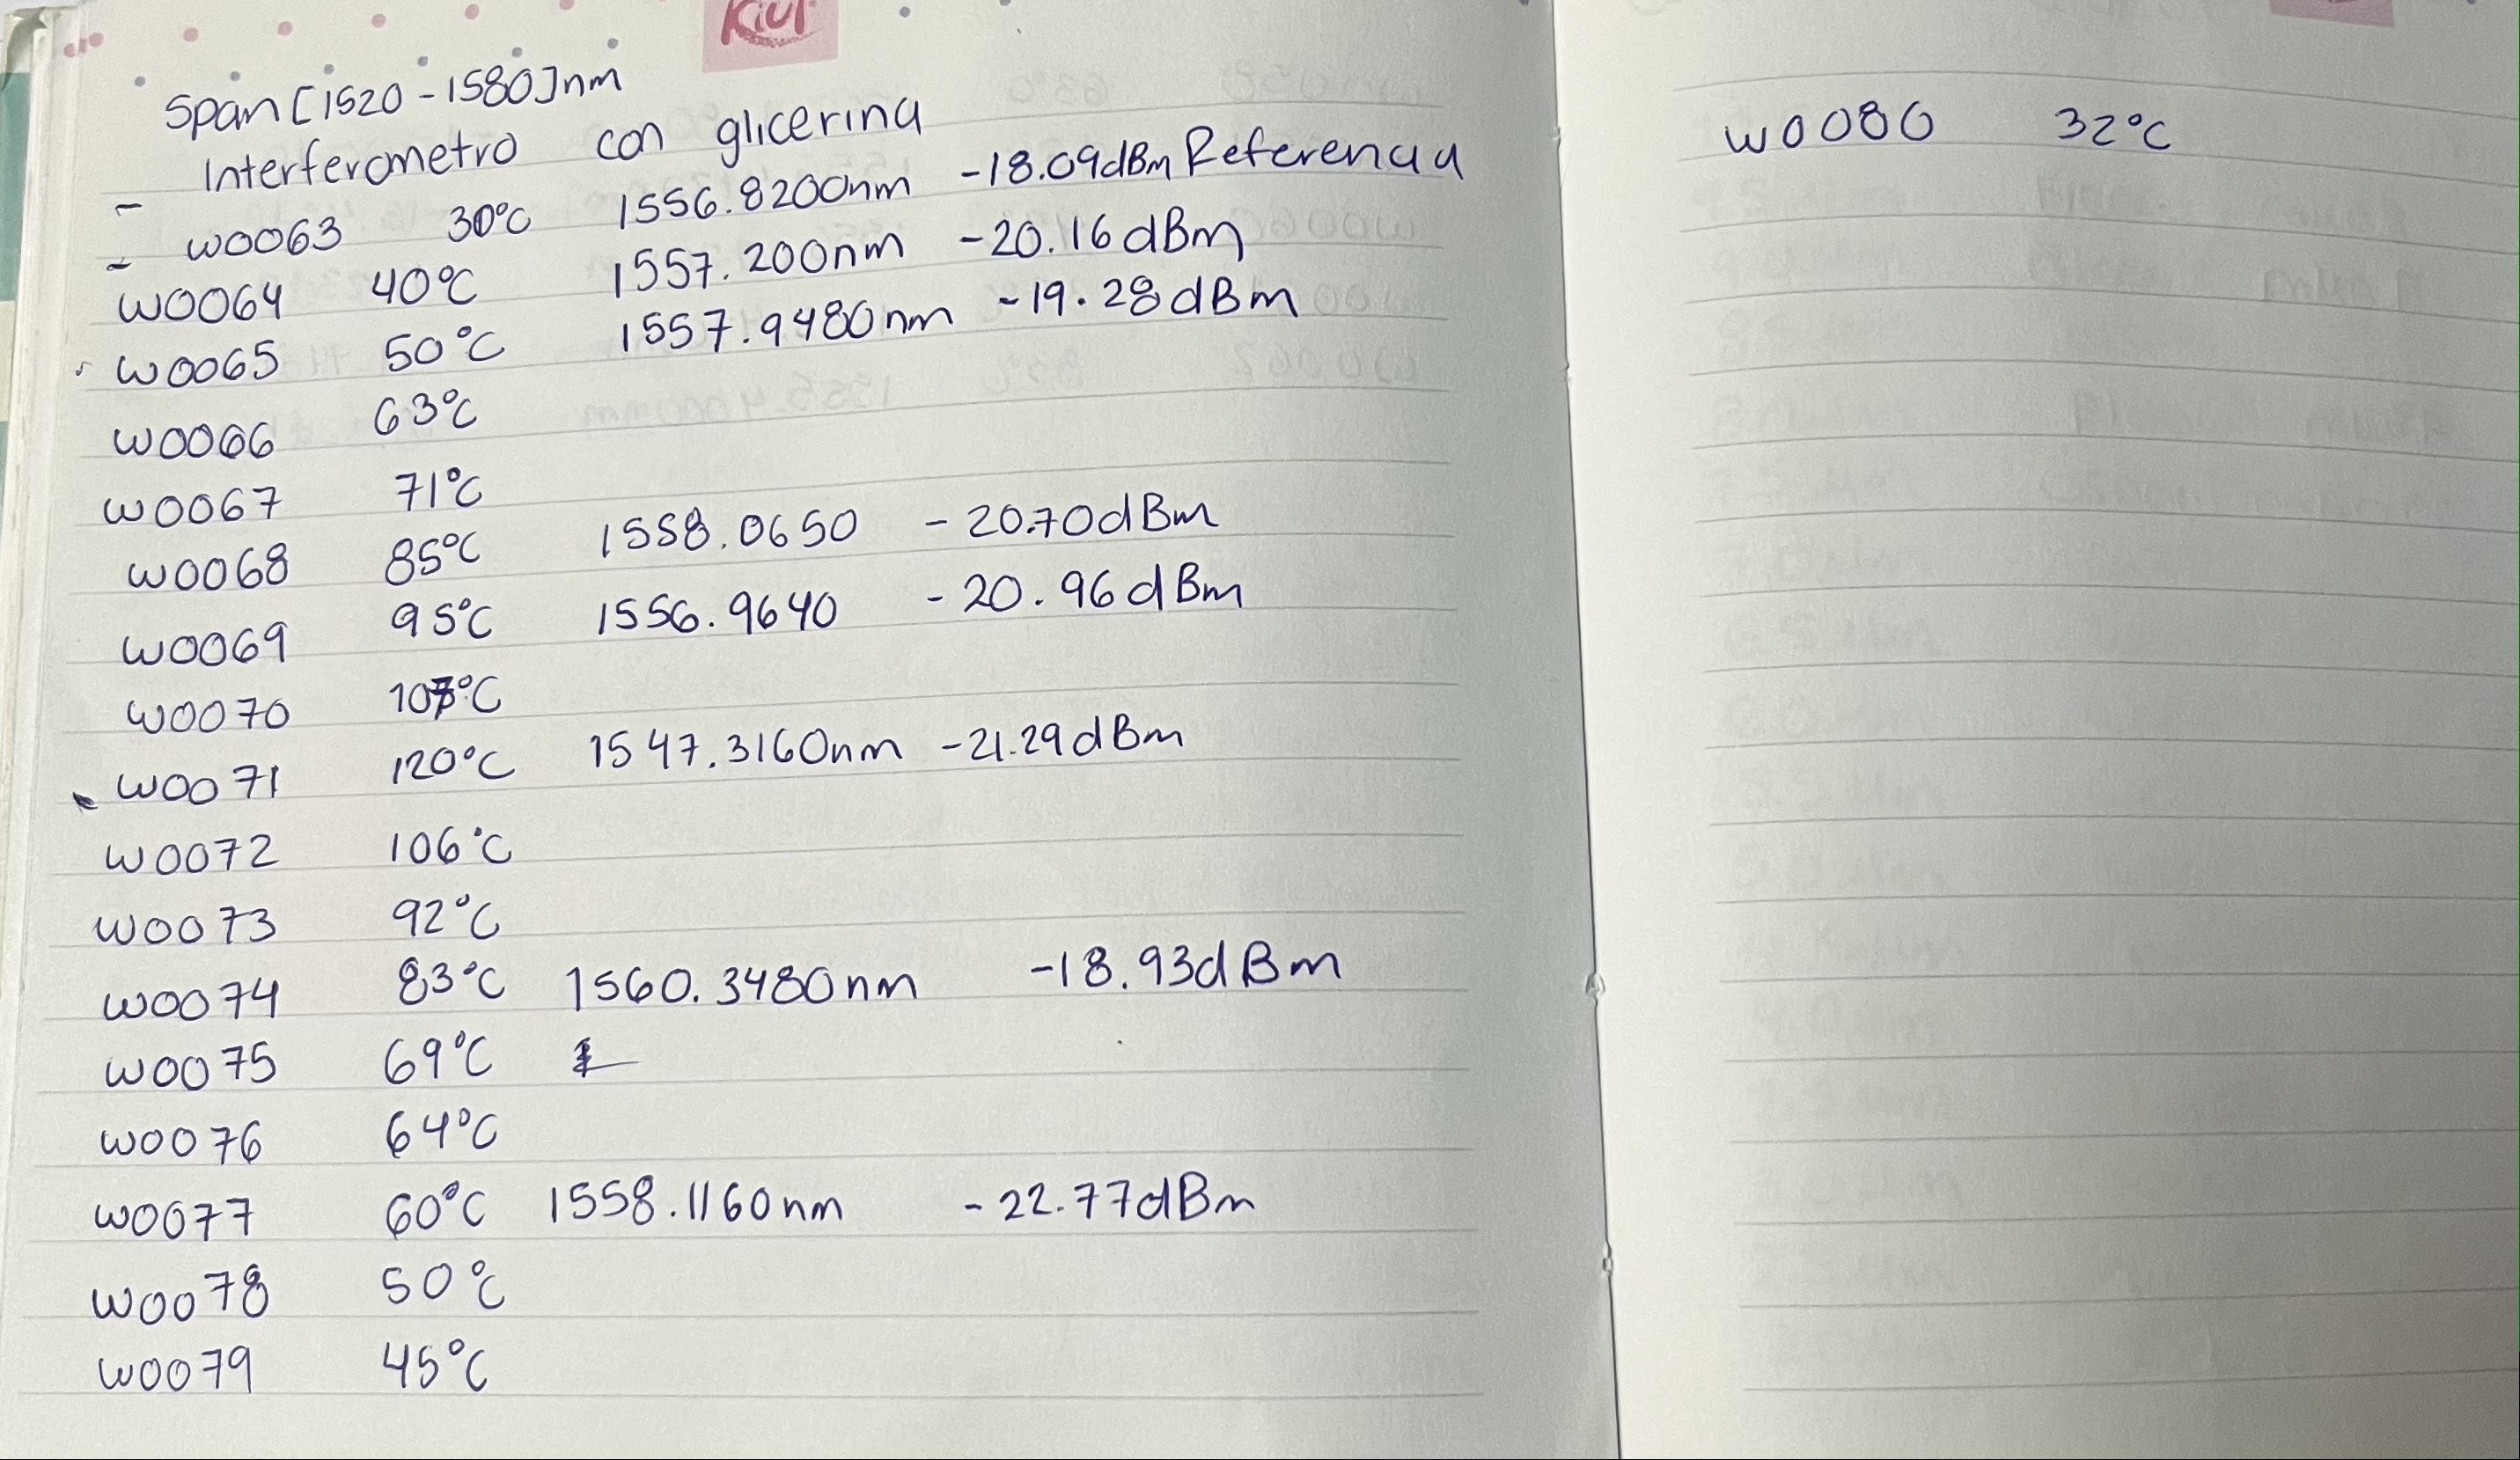 Kiut
Span [1520-1580]nm
- Interferometro con glicerina
- W0063 30°C 1556.8200nm -18.09dBm Referencia
W0064 40°C 1557.200nm -20.16dBm
W0065 50°C 1557.9480nm -19.28dBm
W0066 63°C
W0067 71°C
W0068 85°C 1558.0650 -20.70dBm
W0069 95°C 1556.9640 -20.96dBm
W0070 107°C
W0071 120°C 1547.3160nm -21.29dBm
W0072 106°C
W0073 92°C
W0074 83°C 1560.3480nm -18.93dBm
W0075 69°C
W0076 64°C
W0077 60°C 1558.1160nm -22.77dBm
W0078 50°C
W0079 45°C
W0080 32°C